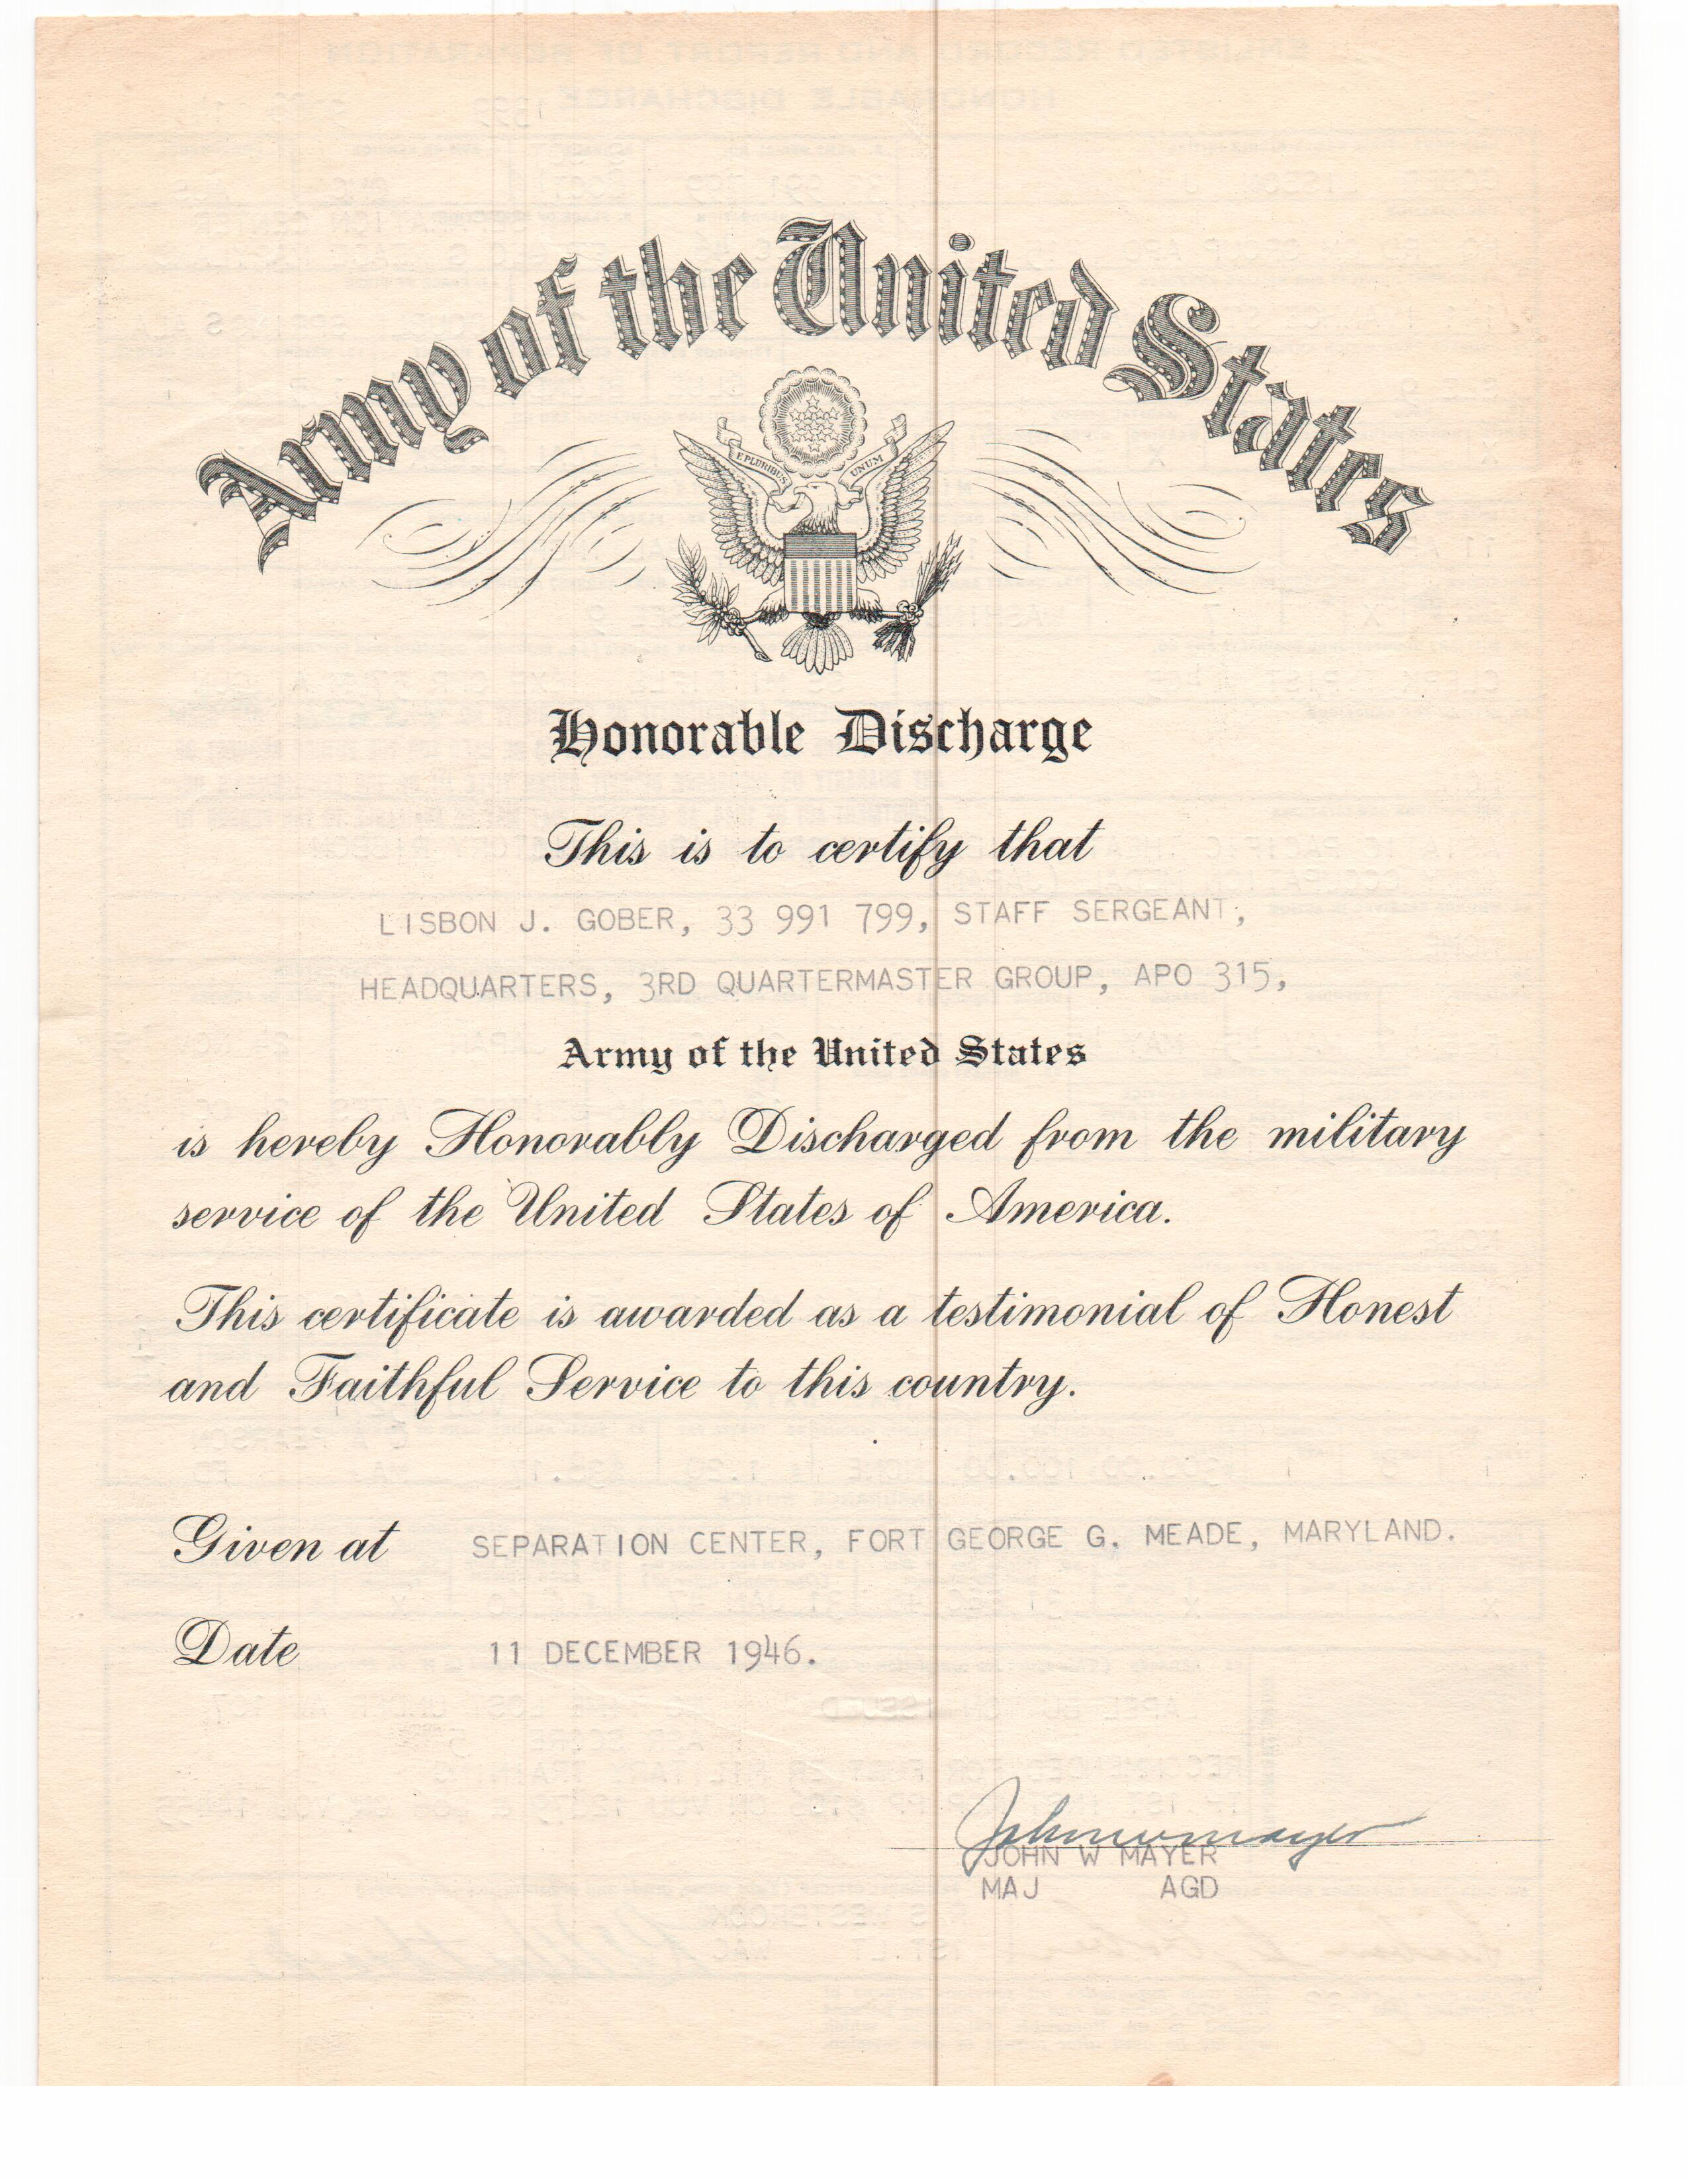 Army of the United States
E PLURIBUS UNUM
Honorable Discharge
This is to certify that
LISBON J. GOBER, 33 991 799, STAFF SERGEANT,
HEADQUARTERS, 3RD QUARTERMASTER GROUP, APO 315,
Army of the United States
is hereby Honorably Discharged from the military
service of the United States of America.
This certificate is awarded as a testimonial of Honest
and Faithful Service to this country.
Given at SEPARATION CENTER, FORT GEORGE G. MEADE, MARYLAND.
Date 11 DECEMBER 1946.
John W Mayer
JOHN W MAYER
MAJ AGD